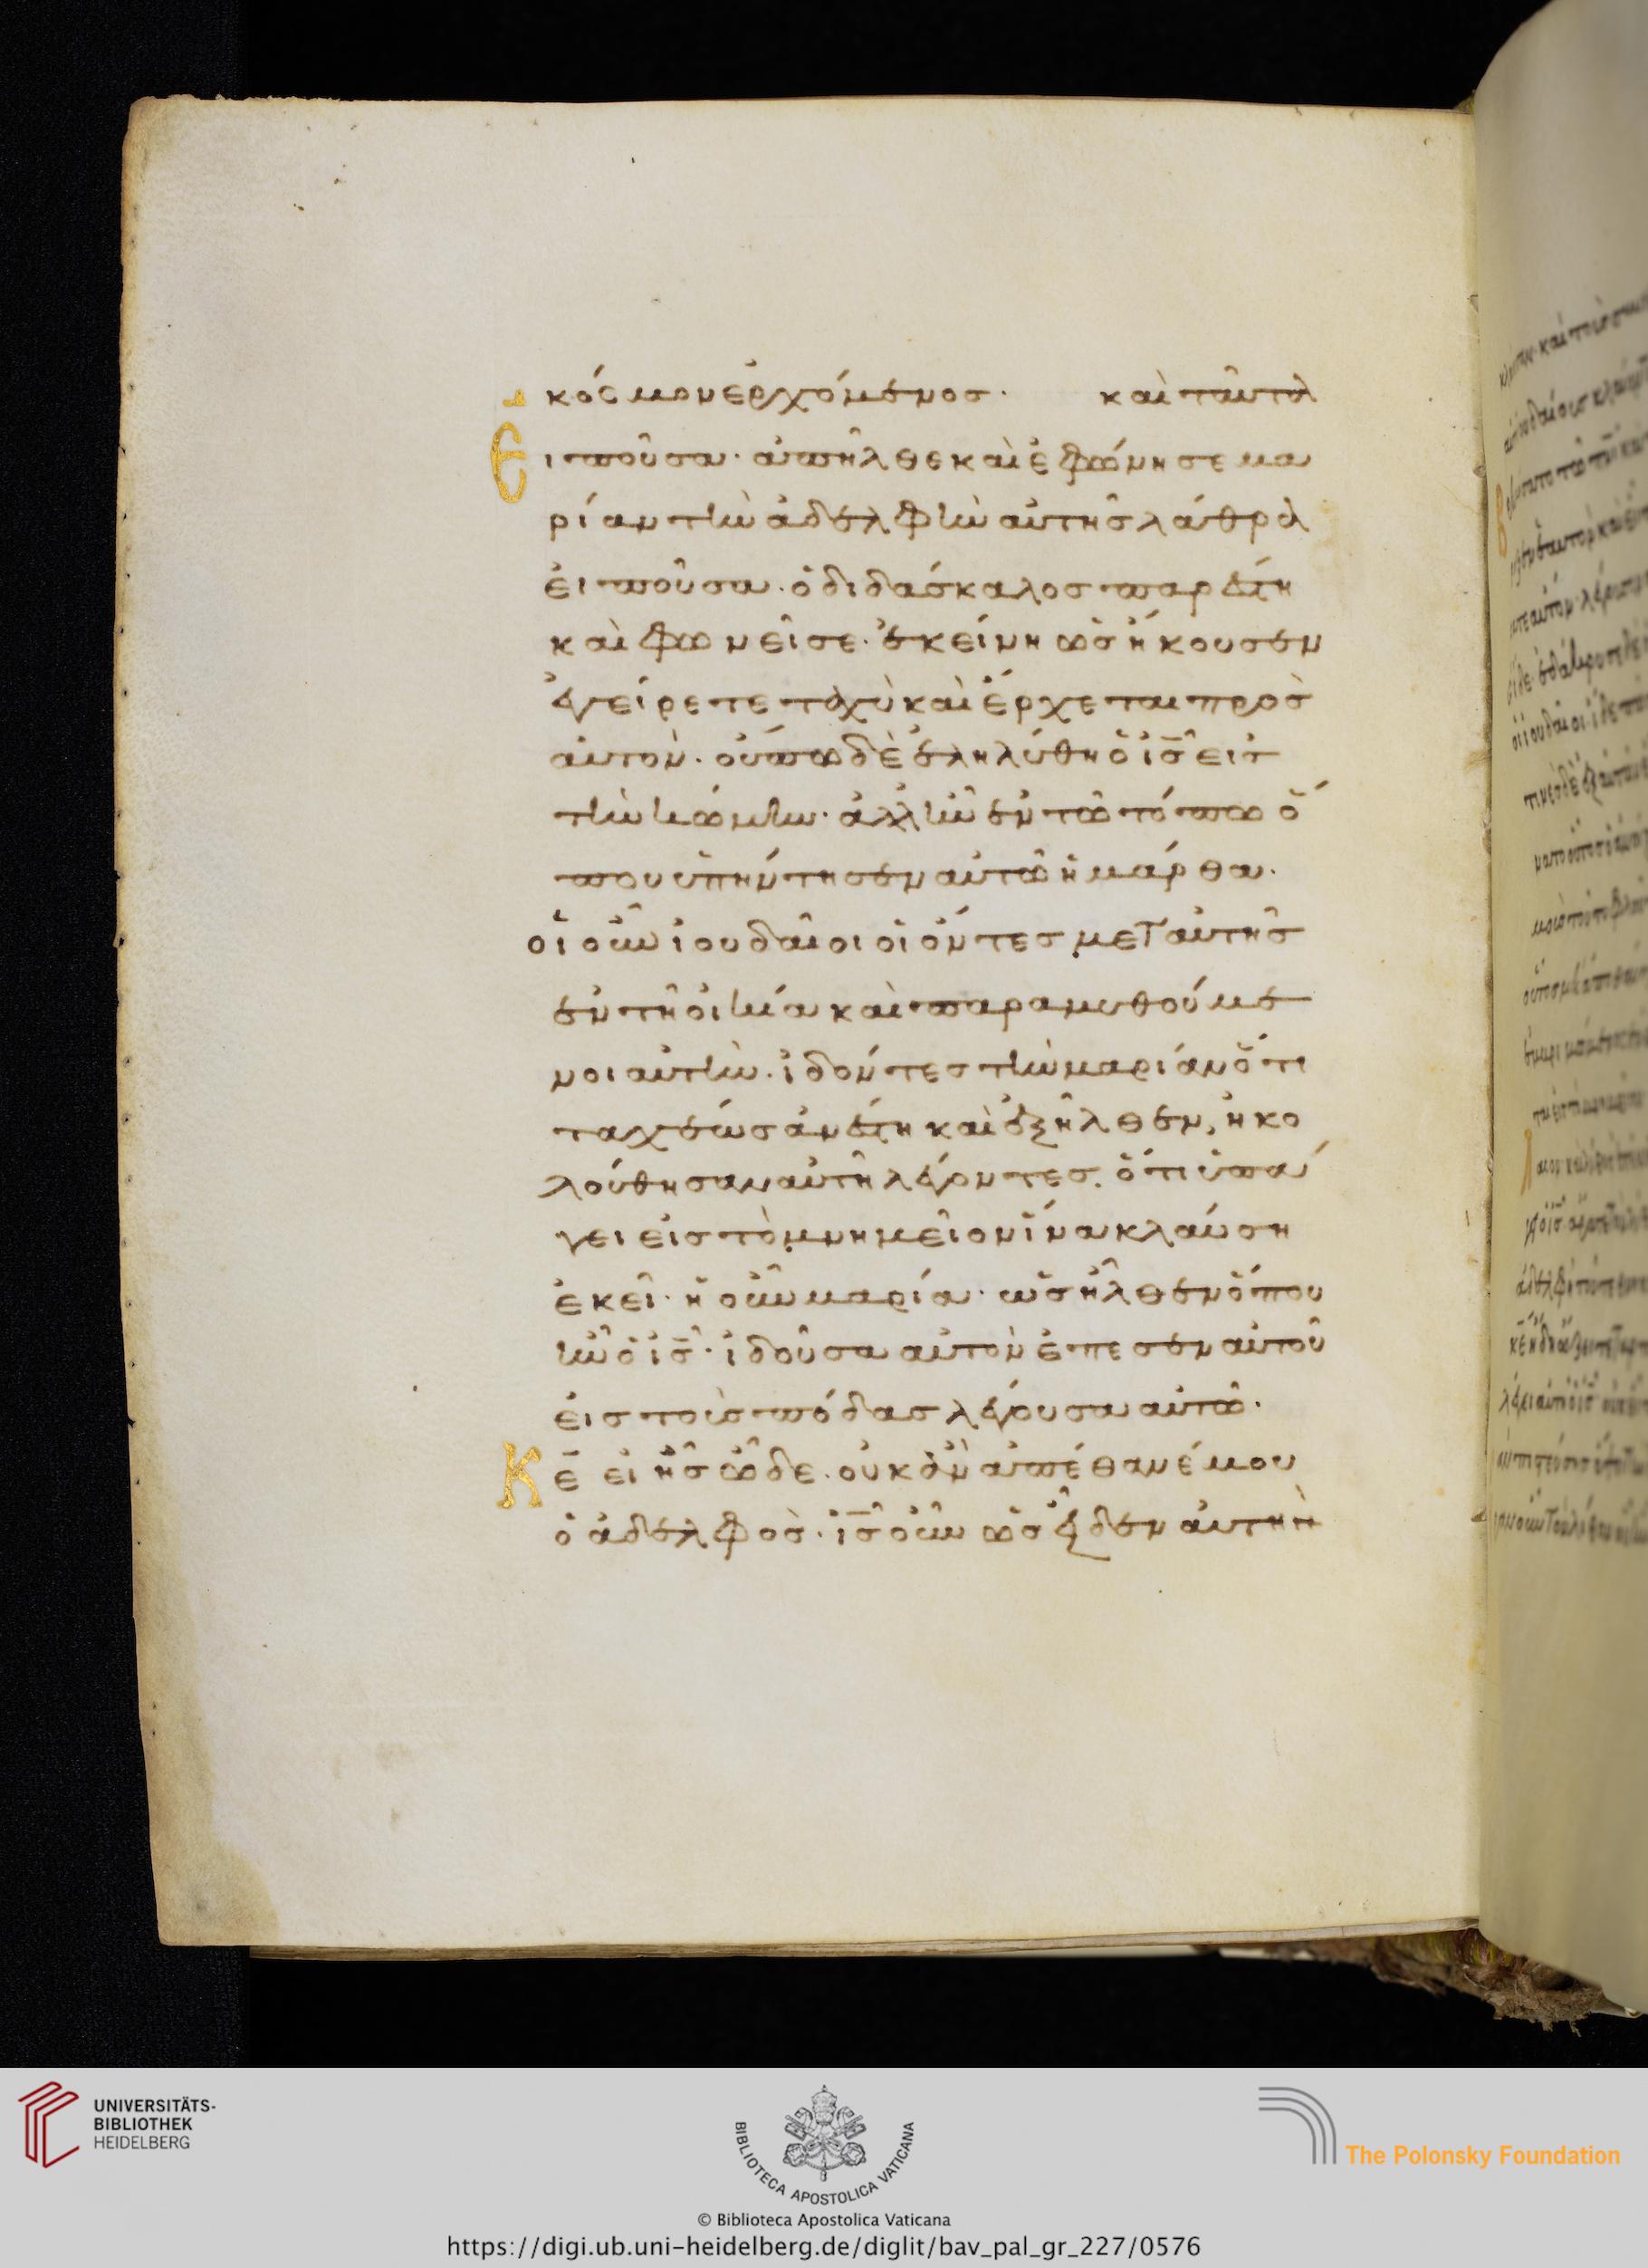 κόσμον ἐρχόμενος· καὶ ταῦτα
Ειποῦσα· ἀπῆλθε καὶ ἐφώνησε μα
ρίαν τὴν ἀδελφὴν αὐτῆς λάθρα
εἰποῦσα· ὁ διδάσκαλος πάρεστι
καὶ φωνεῖ σε· ἐκείνη ὡς ἤκουσεν
ἐγείρετε ταχὺ καὶ ἔρχεται πρὸς
αὐτὸν· οὔπω δὲ ἐληλύθη ὁ ἰς εἰς
τὴν κώμην· ἀλλ ἦν ἐν τῶ τόπω ὅ
που ὑπήντησεν αὐτῶ ἡ μάρθα·
οἱ οὖν ἰουδαῖοι οἱ ὄντες μετ αὐτῆς
ἐν τῆ οἰκία καὶ παραμυθούμε
νοι αὐτὴν· ἰδόντες τὴν μαρίαν ὅτι
ταχέως ἀνέστη καὶ ἐξῆλθεν, ἠκο
λούθησαν αὐτῆ λέγοντες· ὅτι ὑπά
γει εἰς τὸ μνημεῖον ἵνα κλαύση
ἐκεῖ· ἡ οὖν μαρία· ὡς ἦλθεν ὅπου
ἦν ὁ ἰς· ἰδοῦσα αὐτὸν ἔπεσεν αὐτοῦ
εἰς τοὺς πόδας λέγουσα αὐτῶ·
Κε εἰ ἦς ὧδε· οὐκ ἂν ἀπέθανέ μου
ὁ ἀδελφὸς· ἰς οὖν ὡς εἶδεν αὐτὴν
UNIVERSITÄTS-
BIBLIOTHEK
HEIDELBERG
BIBLIOTECA APOSTOLICA VATICANA
The Polonsky Foundation
© Biblioteca Apostolica Vaticana
https://digi.ub.uni-heidelberg.de/diglit/bav_pal_gr_227/0576